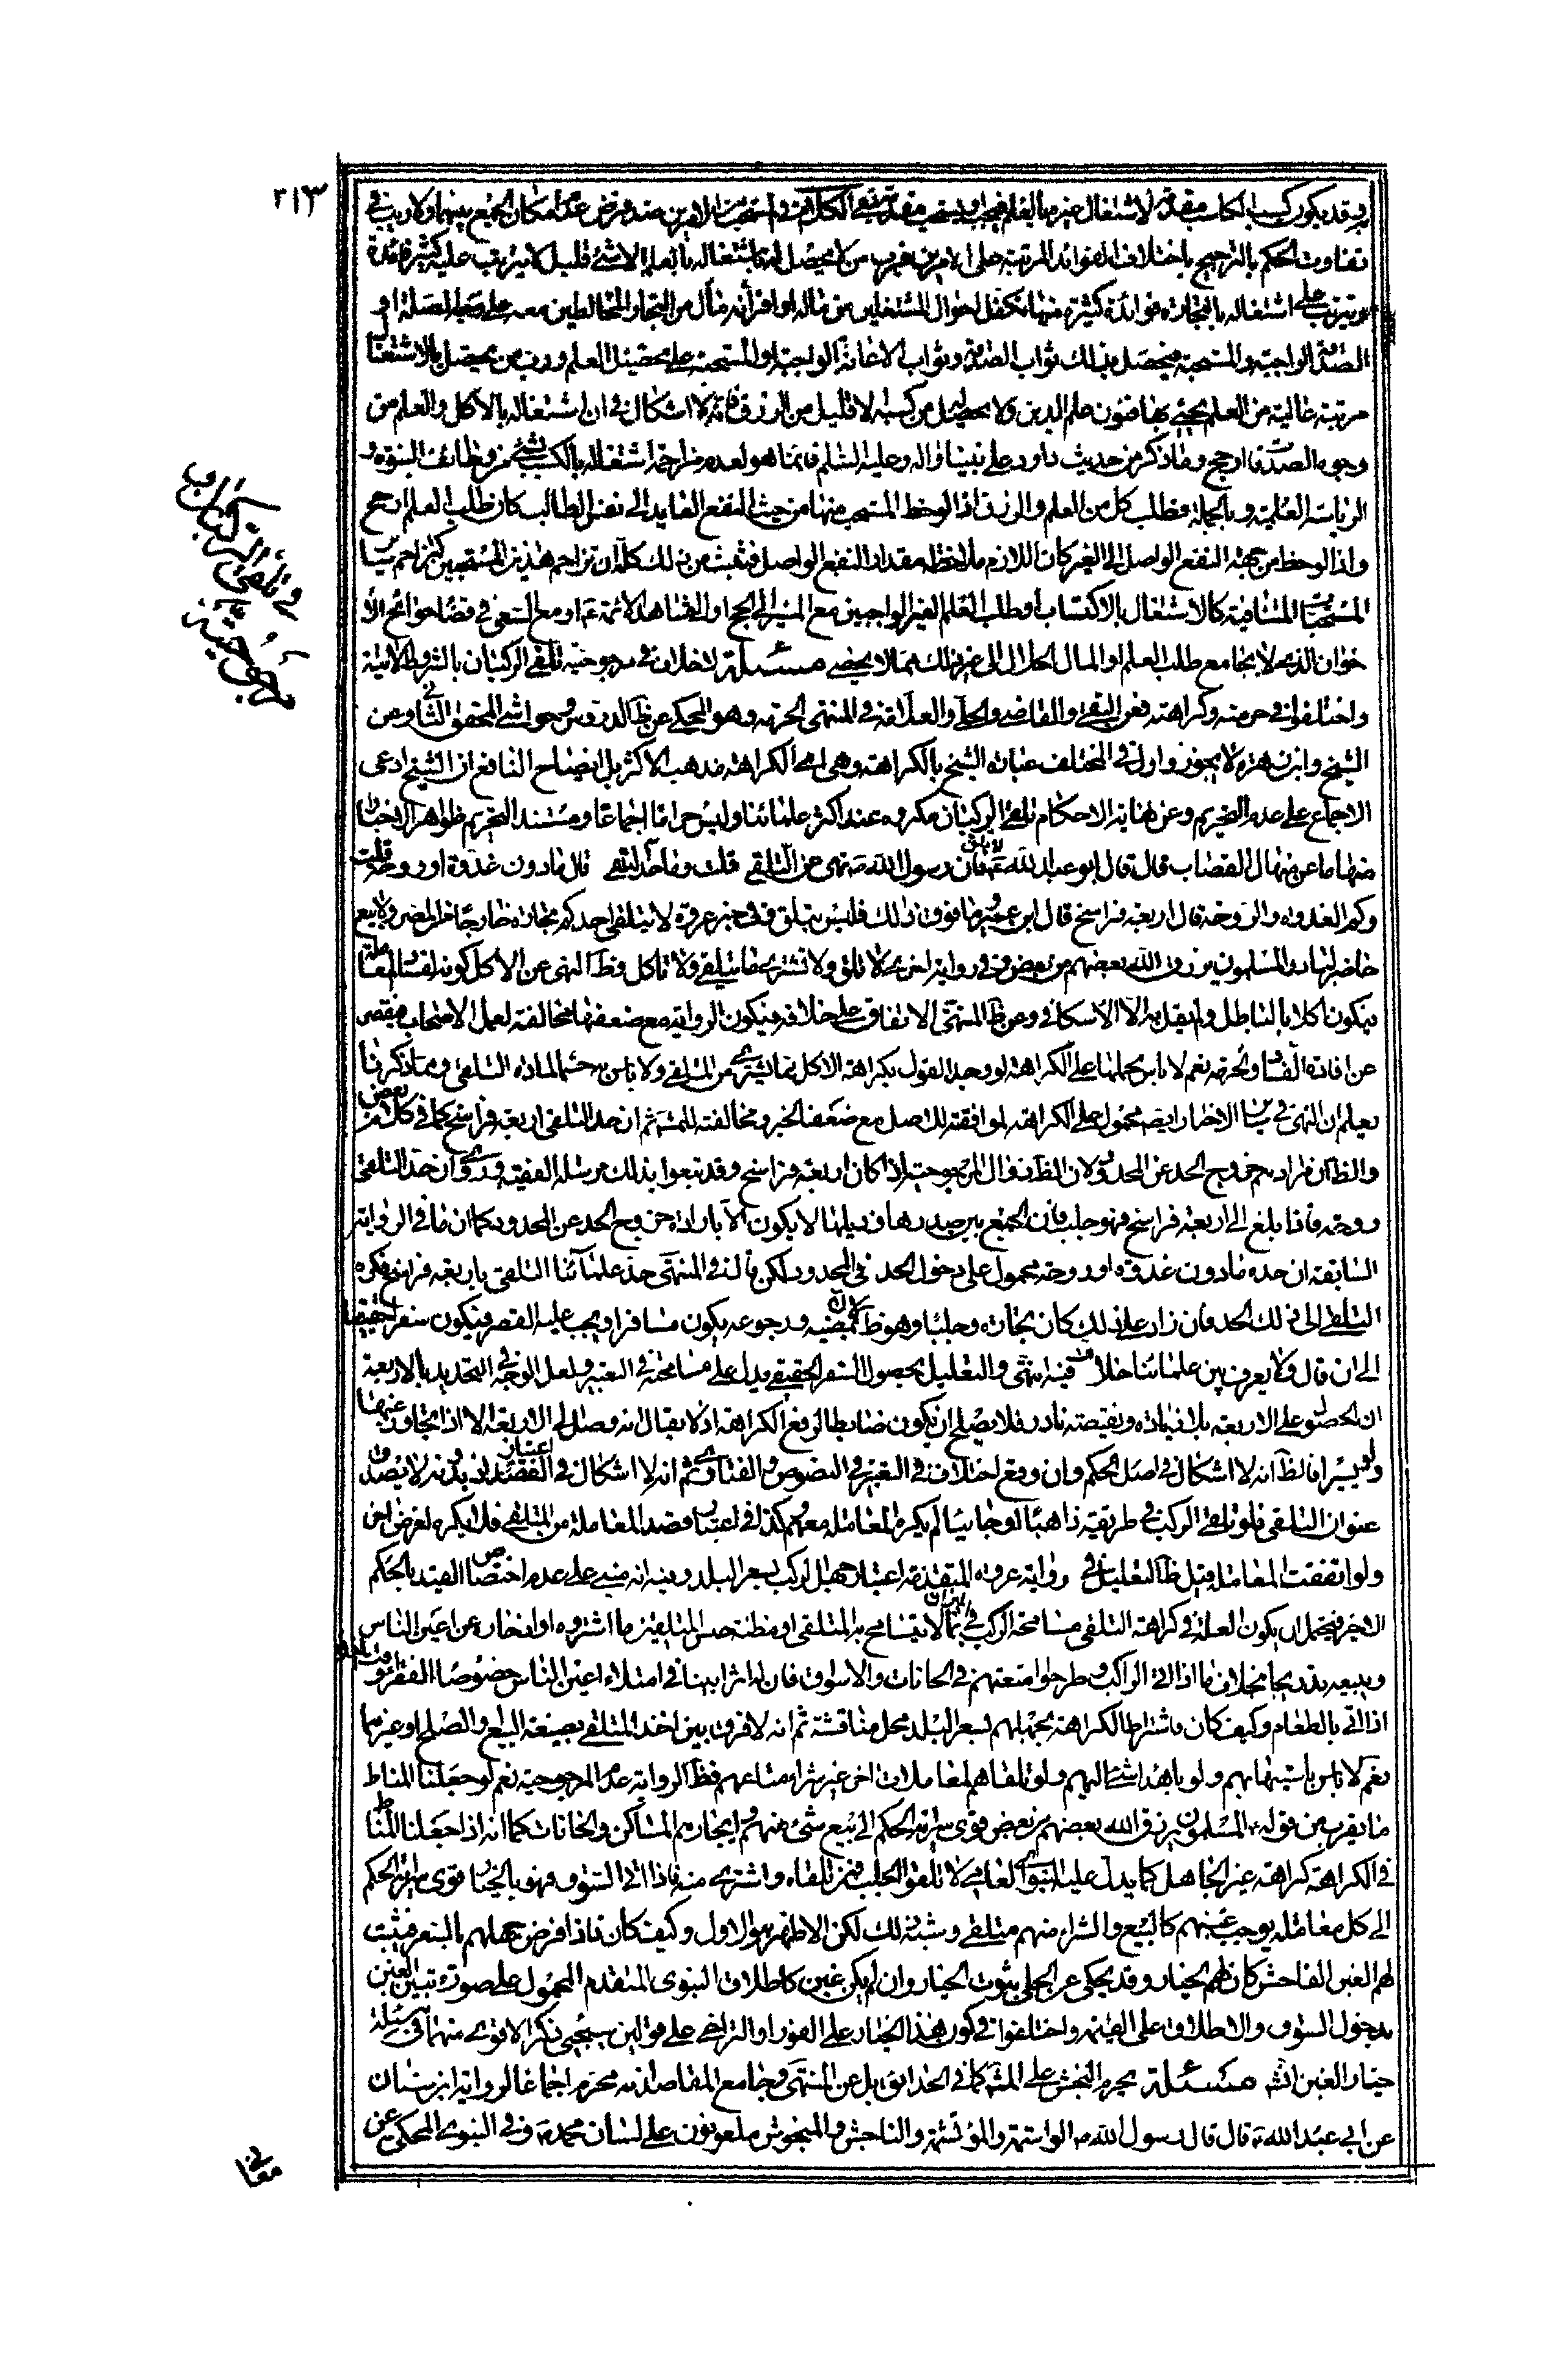 ٢١٣
وقد يكون كسب الكاسب مقدمة لاشتغال غيره بالعلم فيجب او يستحب مقدمة بقي الكلام في المستحب من الامرين عند فرض عدم امكان الجمع بينهما ولا ريب في
تفاوت الحكم بالترجيح باختلاف الفوائد المرتبة على الامرين فرب من لا يحصل له باشتغاله بالعلم الا شئ قليل لا يترتب عليه كثير فائدة
ويترتب على اشتغاله بالتجارة فوائد كثيرة منها تكفل احوال المشتغلين من ماله او اقرانه مال من التجار المخالطين معه على وجه الصلة او
الصدقة الواجبة والمستحبة فيحصل بذلك ثواب الصدقة وثواب الاعانة الواجبة او المستحبة على تحصيل العلم ورب من يحصل بالاشتغال
مرتبة عالية من العلم يحيي بها فنون علم الدين ولا يحصل له من كسبه الا قليل من الرزق فانه لا اشكال في ان اشتغاله بالاكل والعلم من
وجوه الصدقة ارجح وما ذكر من حديث داود على نبينا واله وعليه السلم فانما هو لعدم مزاحمة اشتغاله بالكسب لشئ من وظائف النبوة و
الرياسة العلمية وبالجملة فطلب كل من العلم والرزق اذا لوحظ المستحب منهما من حيث النفع العايد الى نفس الطالب كان طلب العلم ارجح
واذا لوحظ من جهة النفع الواصل الى الغير كان اللازم ملاحظة مقدار النفع الواصل فثبت من ذلك كله ان تزاحم هذين المستحبين كتزاحم ساير
المستحبات المتنافية كالاشتغال بالاكتساب او طلب العلم الغير الواجبين مع المسير الى الحج او الى مشاهد الائمة ع او مع السعي في قضاء حوائج الا
خوان الذي لا يجامع طلب العلم او المال الحلال الى غير ذلك مما لا يحصى مسئلة لا خلاف في مرجوحية تلقي الركبان بالشروط الاتية
واختلفوا في حرمته وكراهته فعن التقي والقاضي والحلي والعلامة في المنتهى الحرمة وهو المحكي عن ظ الدروس وحواشي المحقق الثاني وعن
الشيخ وابن زهرة لا يجوز واول في المختلف عبارة الشيخ بالكراهة وهي اي الكراهة مذهب الاكثر بل ايضاح النافع ان الشيخ ادعى
الاجماع على عدم التحريم وعن نهاية الاحكام تلقي الركبان مكروه عند اكثر علمائنا وليس حراما اجماعا ومستند التحريم ظواهر الاخبار
منها ما عن منهال القصاب قال قال ابو عبد الله ع لا تلق فان رسول الله ص نهى عن التلقي قلت وما حد التلقي قال ما دون غدوة او روحة قلت
وكم الغدوة والروحة قال اربعة فراسخ قال ابن ابي عمير وما فوق ذلك فليس بتلق وفي خبر عروة لا يتلقى احدكم تجارة خارجا من المصر ولا يبيع
حاضر لباد والمسلمون يرزق الله بعضهم من بعض وفي رواية اخرى لا تلق ولا تشتر ما يتلقى ولا تاكل وظ النهي عن الاكل كونه لفساد المعاملة
فيكون اكلا بالباطل ولم يقل به الا الاسكافي وعن ظ المنتهى الاتفاق على خلافه فيكون الرواية مع ضعفها مخالفة لعمل الاصحاب فيقصر
عن افادة الفساد والحرمة نعم لا باس بحملها على الكراهة لو وجد القول بكراهة الاكل مما يشترى من المتلقي ولا باس به حسما لمادة التلقي ومما ذكرنا
يعلم ان النهي في ساير الاخبار ايضا محمول على الكراهة لموافقته للاصل مع ضعف الخبر ومخالفته للمشهور ثم ان حد التلقي اربعة فراسخ كما في كلام بعض
والظ ان مرادهم خروج الحد عن المحدود لان الظ زوال المرجوحية اذا كان اربعة فراسخ وقد تبعوا بذلك مرسلة الفقيه وروي ان حد التلقي
روحة فاذا بلغ الى اربعة فراسخ فهو جلب فان الجمع بين صدرها وذيلها لا يكون الا بارادة خروج الحد عن المحدود كما ان ما في الرواية
السابقة ان حده ما دون غدوة او روحة محمول على دخول الحد في المحدود لكن قال في المنتهى حد علمائنا التلقي باربعة فراسخ فكره
التلقي الى ذلك الحد فان زاد على ذلك كان تجارة وجلبا وهو ظ لان بمضيه ورجوعه يكون مسافرا ويجب عليه القصر فيكون سفرا حقيقيا
الى ان قال ولا يعرف بين علمائنا خلاف فيه انتهى والتعليل بحصول السفر الحقيقي يدل على مسامحة في التعبير ولعل الوجه في التحديد بالاربعة
ان الحصول على الاربعة بلا زيادة ونقيصة نادر فلا يصلح ان يكون ضابطا لرفع الكراهة اذ لا يقال انه وصل الى الاربعة الا اذا تجاوز عنها
ولو يسيرا فالظ انه لا اشكال في اصل الحكم وان وقع اختلاف في التعبير في النصوص والفتاوى ثم انه لا اشكال في اعتبار القصد اذ بدونه لا يصدق
عنوان التلقي فلو تلقى الركب في طريقه ذاهبا او جائيا لم يكره المعاملة معهم وكذا في اعتبار قصد المعاملة من المتلقي فلا يكره لغرض اخر
ولو اتفقت المعاملة قيل ظ التعليل في رواية عروة المتقدمة اعتبار جهل الركب بسعر البلد وفيه انه مبني على عدم اختصاص القيد بالحكم
الاخير فيحتمل ان يكون العلة في كراهة التلقي مسامحة الركب في الميزان بما لا يتسامح به المتلقي او مظنة حبس المتلقين ما اشتروه او ادخاره عن اعين الناس
وبيعه تدريجا بخلاف ما اذا اتى الراكب وطرحوا امتعتهم في الخانات والاسواق فان له اثرا بينا في امتلاء اعين الناس خصوصا الفقراء وقت الغلاء
اذا اتي بالطعام وكيف كان فاشتراط الكراهة بجهلهم بسعر البلد محل مناقشة ثم انه لا فرق بين اخذ المتلقي بصيغة البيع والصلح او غيرهما
نعم لا باس باستيهابهم ولو باهداء شئ اليهم ولو تلقاهم لمعاملات اخر غير شراء متاعهم فظ الرواية عدم المرجوحية نعم لو جعلنا المناط
ما يقرب من قوله ص المسلمون يرزق الله بعضهم من بعض قوي سراية الحكم الى بيع شئ منهم وايجارهم المساكن والخانات كما انه اذا جعلنا المناط
في الكراهة كراهة غبن الجاهل كما يدل عليه النبوي العامي لا تلقوا الجلب فمن تلقاه واشترى منه فاذا اتى السوق فهو بالخيار قوي سراية الحكم
الى كل معاملة يوجب غبنهم كالبيع والشراء منهم متلقي وشبه ذلك لكن الاظهر هو الاول وكيف كان فاذا فرض جهلهم بالسعر فثبت
لهم الغبن الفاحش كان لهم الخيار وقد يحكى عن الحلي ثبوت الخيار وان لم يكن غبن كاطلاق النبوي المتقدم المحمول على صورة تبين الغبن
بدخول السوق والاطلاع على القيمة واختلفوا في كون هذا الخيار على الفور او التراخي على قولين سيجيئ ذكر الاقوى منهما في مسئلة
خيار الغبن انش مسئلة يحرم النجش على المشه كما في الحدائق بل عن المنتهى وجامع المقاصد انه محرم اجماعا لرواية ابن سنان
عن ابي عبد الله ع قال قال رسول الله ص الواشمة والموتشمة والناجش والمنجوش ملعونون على لسان محمد ص وفي النبوي المحكي عن
معاني
في تلقي الركبان و
مرجوحيته